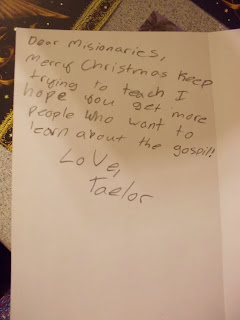 Dear Misionaries,
Merry Christmas Keep
trying to teach I
hope you get more
people who want to
learn about the gospil!
Love,
Taelor